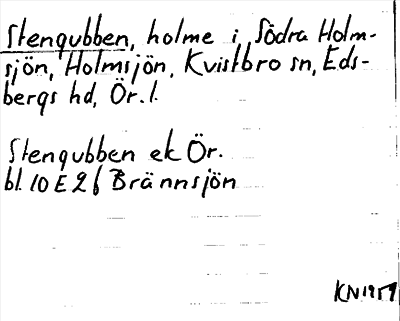 Stengubben, holme i Södra Holm-
sjön, Holmsjön, Kvistbro sn, Eds-
bergs hd, Ör. l.
Stengubben ek Ör.
bl. 10 E 2 f Brännsjön
KN 1959